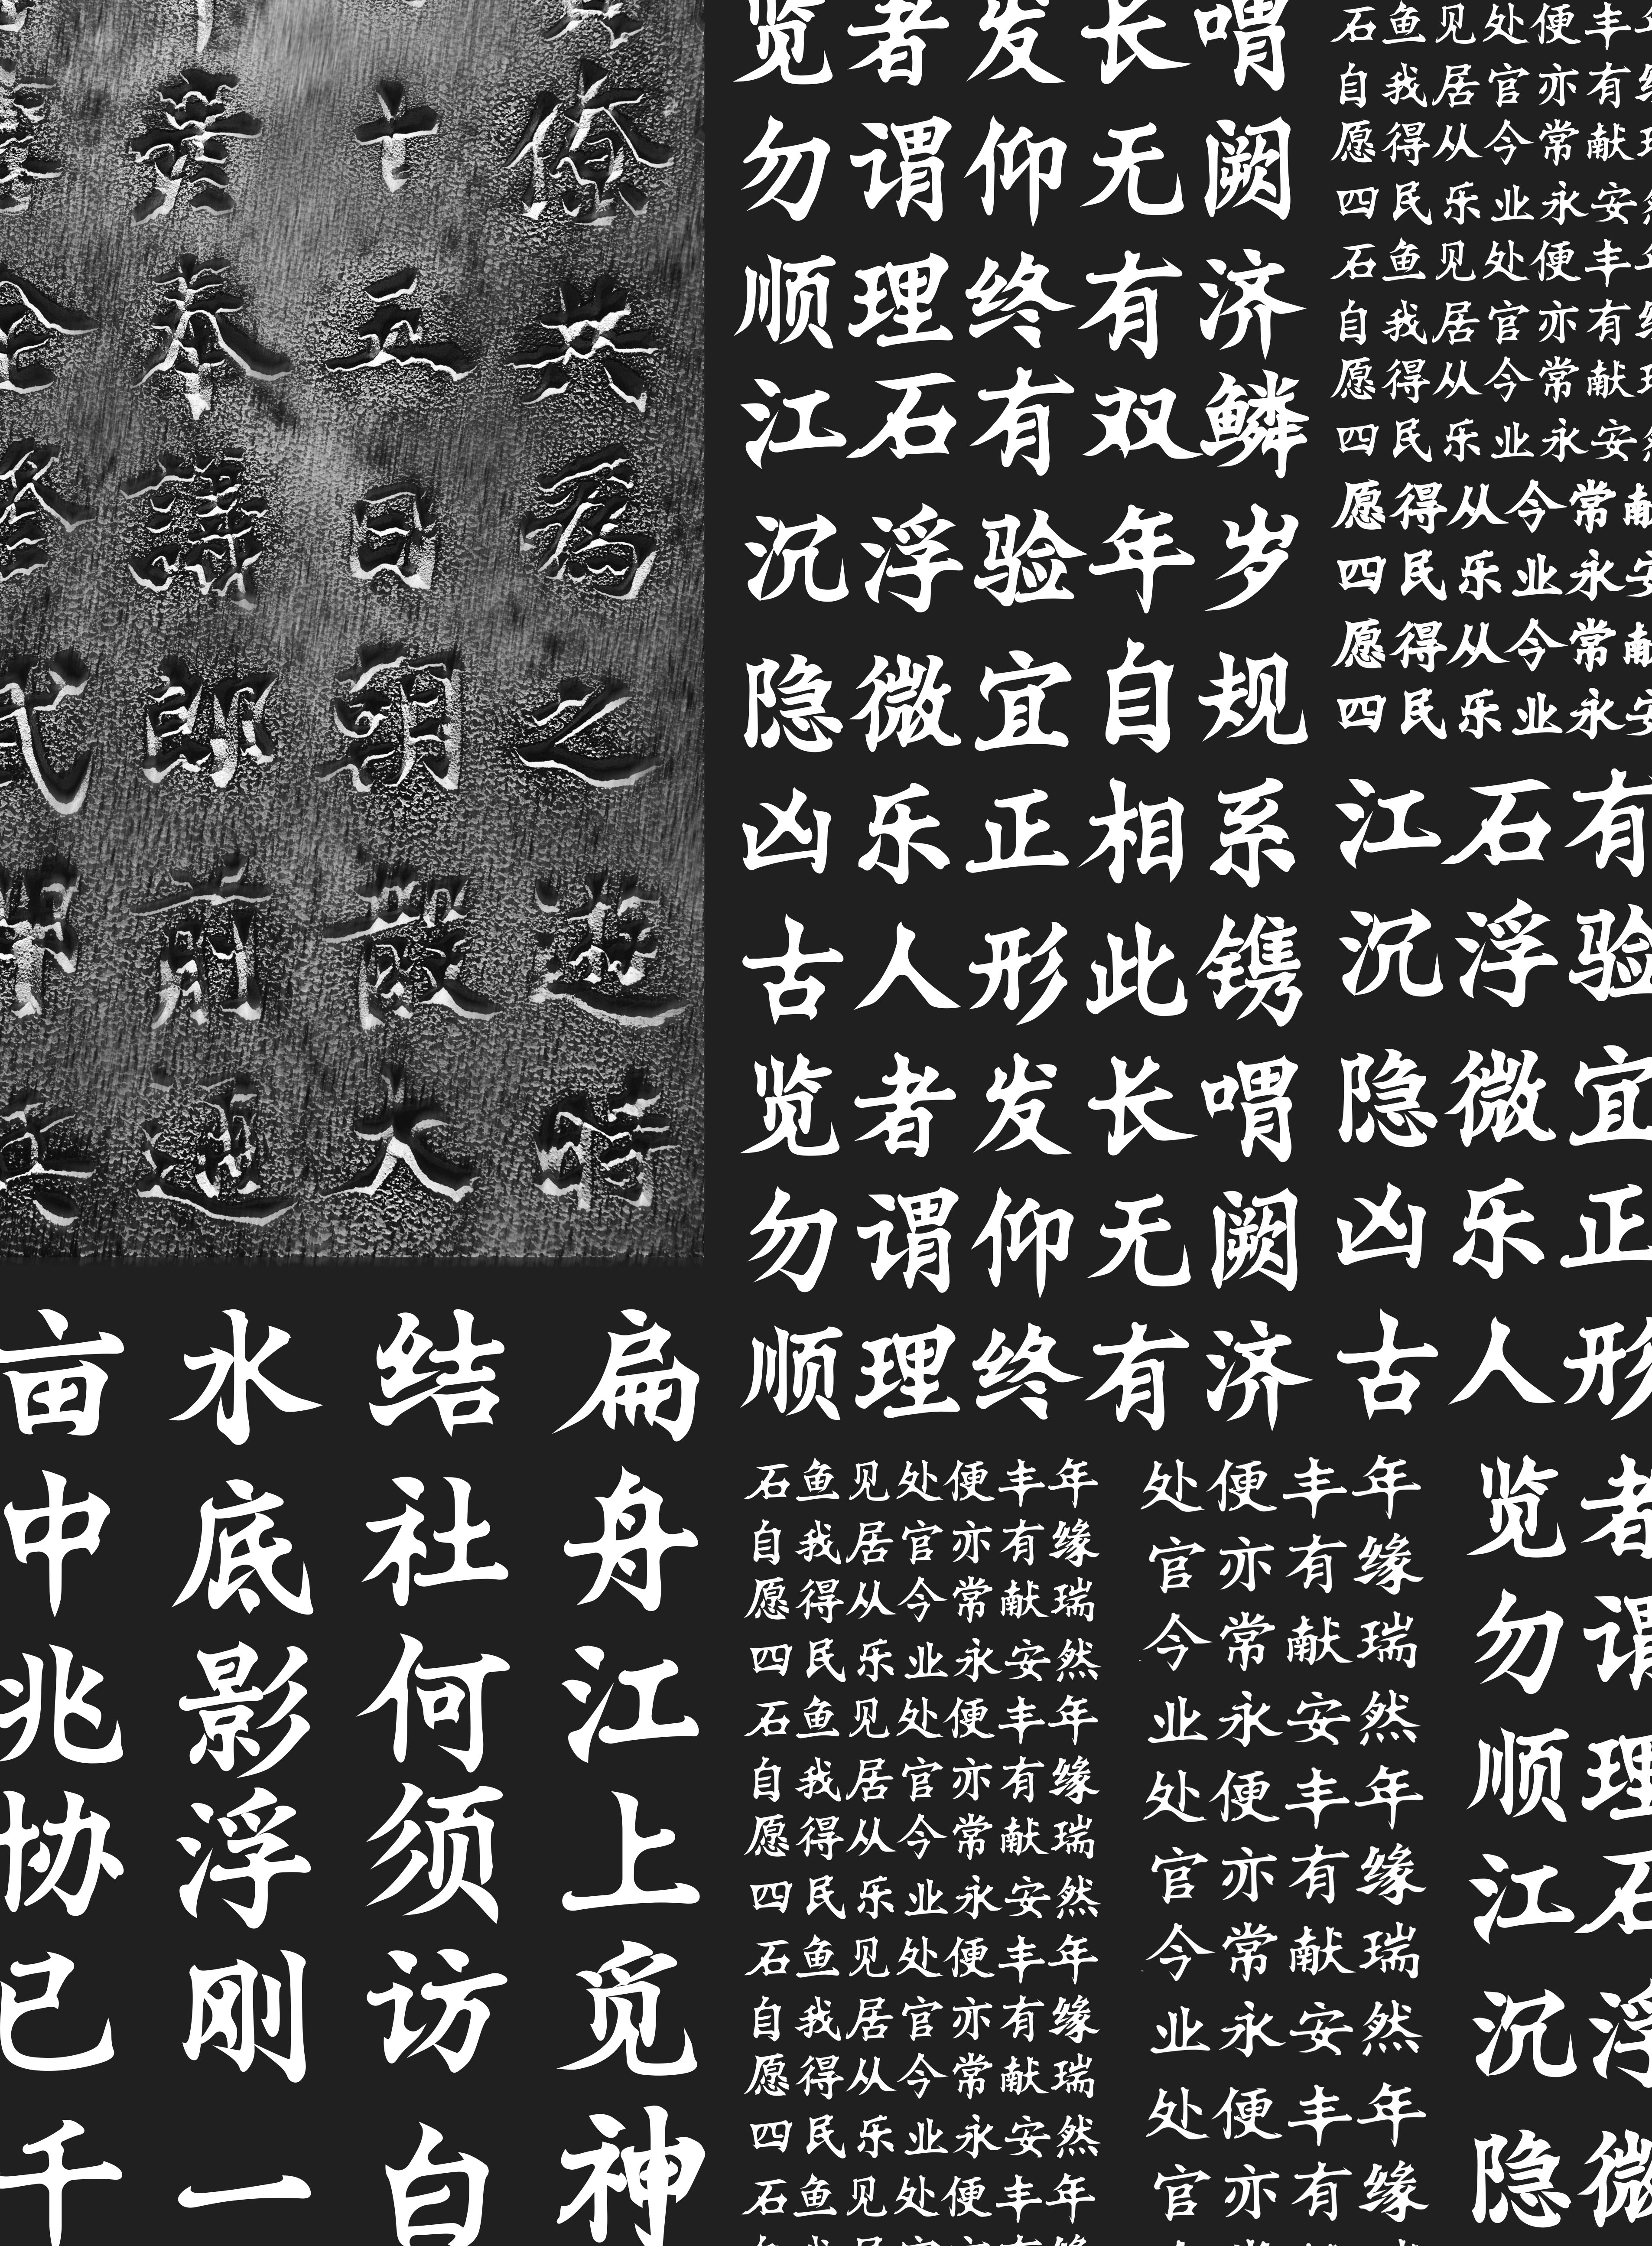 僚共為之遊時
十五日朝散大
奉議郎前通
览者发长喟
勿谓仰无阙
顺理终有济
江石有双鳞
沉浮验年岁
隐微宜自规
凶乐正相系
古人形此镌
览者发长喟
勿谓仰无阙
顺理终有济
石鱼见处便丰年
自我居官亦有
愿得从今常献
四民乐业永安然
石鱼见处便丰年
自我居官亦有
愿得从今常献
四民乐业永安然
愿得从今常献
四民乐业永安
愿得从今常献
四民乐业永安
江石有
沉浮验
隐微宜
凶乐正
古人形
扁舟江上觅神
结社何须访白
水底影浮刚一
亩中兆协已千
石鱼见处便丰年
自我居官亦有缘
愿得从今常献瑞
四民乐业永安然
石鱼见处便丰年
自我居官亦有缘
愿得从今常献瑞
四民乐业永安然
石鱼见处便丰年
自我居官亦有缘
愿得从今常献瑞
四民乐业永安然
石鱼见处便丰年
处便丰年
官亦有缘
今常献瑞
业永安然
处便丰年
官亦有缘
今常献瑞
业永安然
处便丰年
官亦有缘
览者
勿谓
顺理
江石
沉浮
隐微